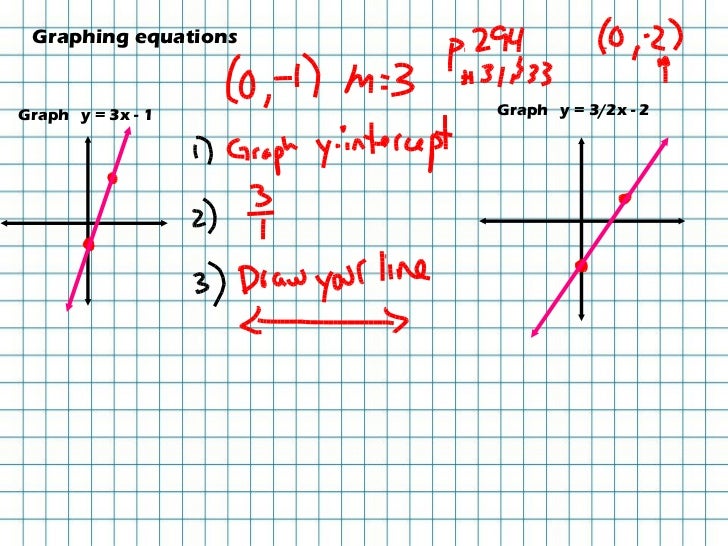 Graphing equations
(0,-1) m=3
p 294
#31,33
(0,-2)
Graph y = 3x - 1
Graph y = 3/2x - 2
1) Graph y-intercept
2) 3/1
3) Draw your line